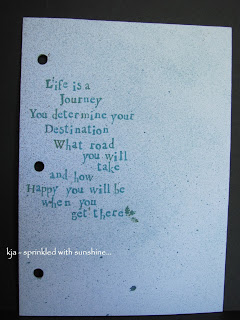 Life is a
Journey
You determine your
Destination
What road
you will
take
and how
Happy you will be
when you
get there
kja - sprinkled with sunshine...